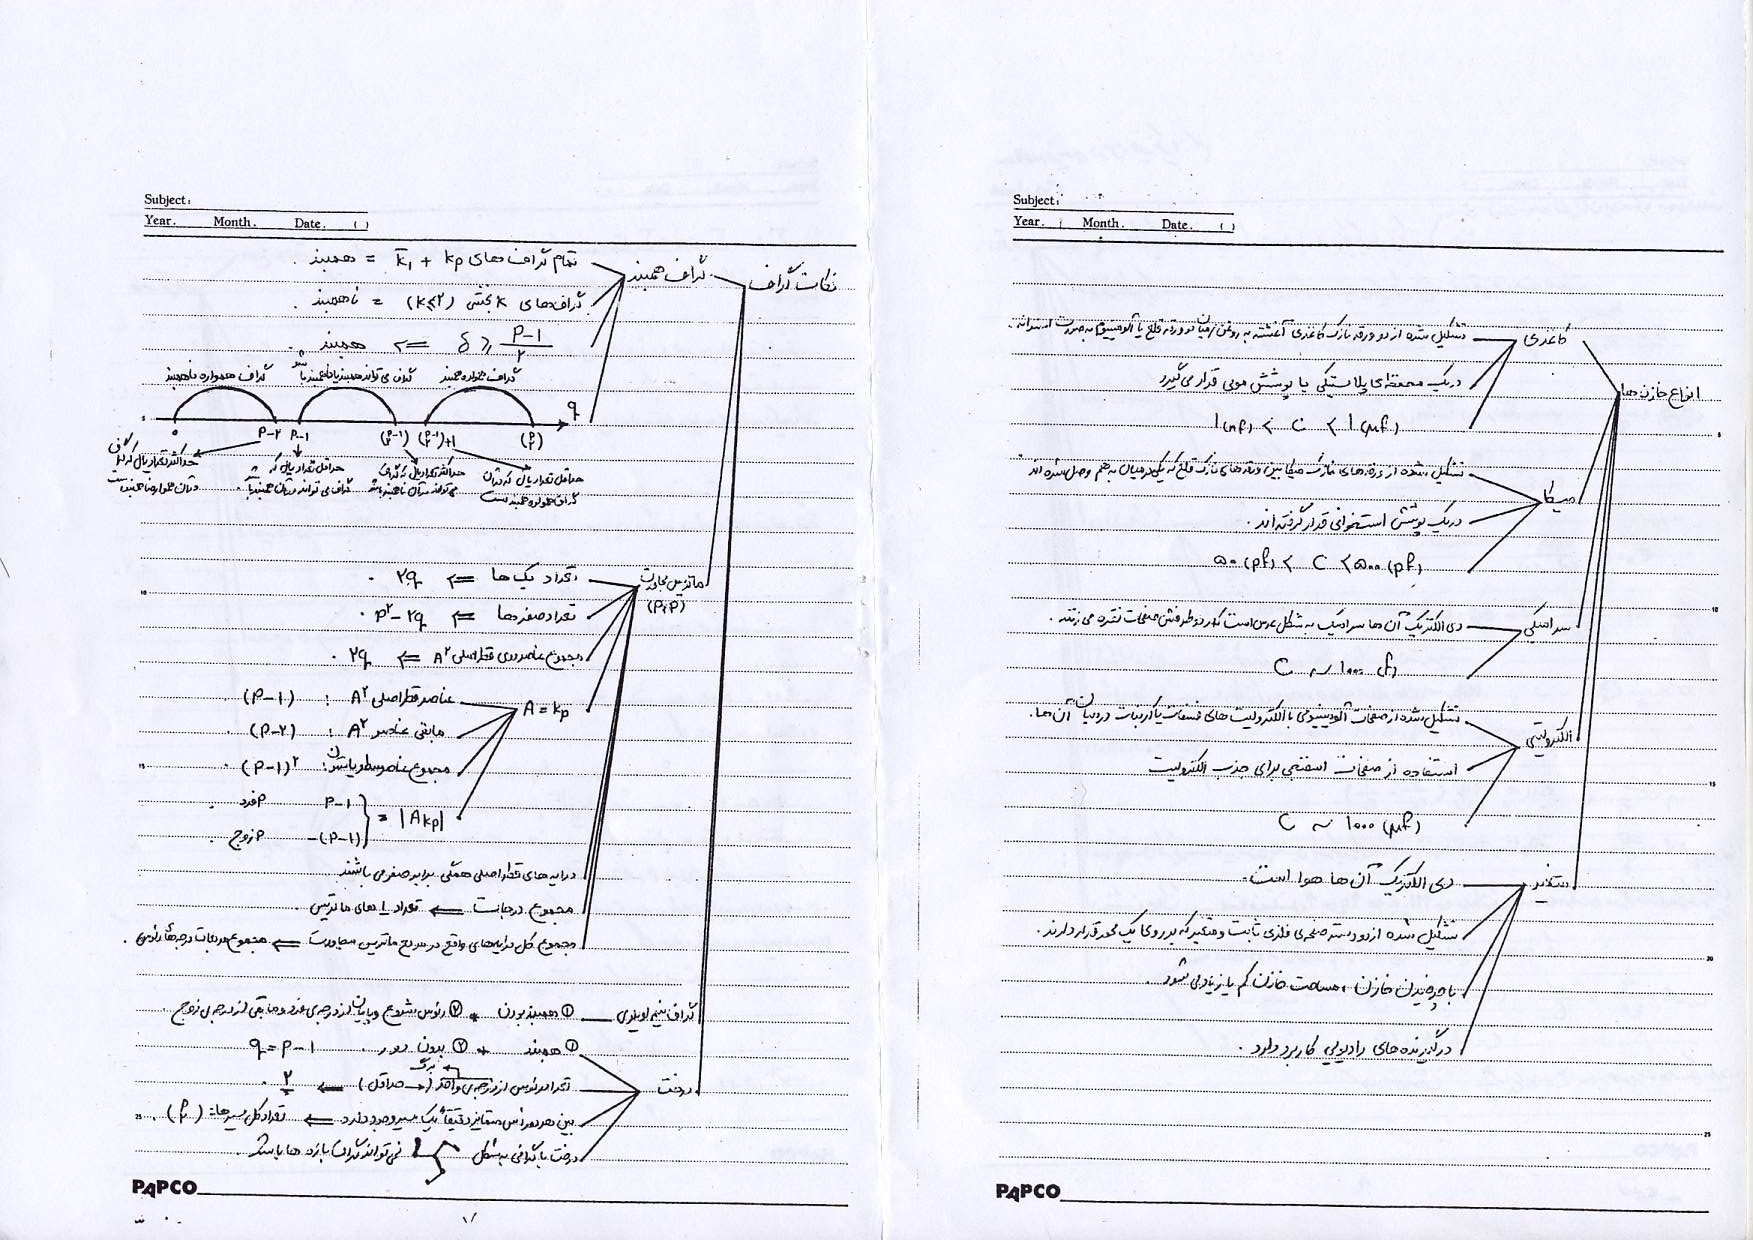 Subject:
Year. Month. Date. ( )
نکات گراف
گراف همبند
تمام گراف های kp + k̄۱ = همبند .
گراف‌های k بخشی (k⩾۲) = ناهمبند .
δ ⩾ (p-1)/۲ ⇐ همبند .
گراف همواره ناهمبند
گراف می تواند همبند یا ناهمبند باشد
گراف همواره همبند
q
۰ p-۲ p-1 (p-1 ۲) (p-1 ۲)+1 (p ۲)
حداکثر تعداد یال که گراف در آن همواره ناهمبند است
حداقل تعداد یال که گراف می تواند در آن همبند باشد .
حداکثر تعداد یال که گراف می تواند در آن ناهمبند باشد
حداقل تعداد یال که در آن گراف همواره همبند است
ماتریس مجاورت (p×p)
تعداد یک ها ⇐ ۲q .
تعداد صفرها ⇐ p²-۲q .
مجموع عناصر روی قطر اصلی A² ⇐ ۲q .
A = kp
عناصر قطر اصلی A² : (p-1) .
مابقی عناصر A² : (p-۲) .
مجموع عناصر سطر یا ستون : (p-1)² .
|Akp| = { p-1 p فرد .
-(p-1) p زوج .
درایه های قطر اصلی همگی برابر صفر می باشند
مجموع درجات ⇐ تعداد 1 های ماتریس .
مجموع کل درایه‌های واقع در مربع ماتریس مجاورت ⇐ مجموع مربعات درجه‌های رئوس .
گراف نیم اویلری ① همبند بودن + ② رئوس شروع و پایان از درجه ی فرد و مابقی از درجه ی زوج .
درخت
① همبند + ② بدون دور . q = p-1
تعداد رئوس از درجه ی واحد (→ حداقل) ⇐ ۲ . برگ
بین هر دو رأس متمایز دقیقاً یک مسیر وجود دارد ⇐ تعداد کل مسیرها: (p ۲) .
درخت یا گرافی به شکل نمی تواند گراف بازه ها باشد .
PAPCO
Subject:
Year. Month. Date. ( )
انواع خازن ها
کاغذی
تشکیل شده از دو ورقه نازک کاغذی آغشته به روغن میان دو ورقه قلع یا آلومینیوم به صورت استوانه .
در یک محفظه‌ای پلاستیکی یا پوشش مومی قرار می گیرد
1(nf) < C < 1(μf)
میکا
تشکیل شده از ورقه های نازک میکا بین ورقه های نازک قلع که یکی در میان به هم وصل شده اند
در یک پوشش استخوانی قرار گرفته اند .
۵۰ (pf) < C < ۵۰۰ (pf)
سرامیکی
دی الکتریک آن ها سرامیک به شکل عدس است که در دو طرفش صفحات نقره می زنند .
C ~ 1۰۰۰ (f)
الکترولیتی
تشکیل شده از صفحات آلومینیومی با الکترولیت های فسفات یا کربنات در میان آن ها .
استفاده از صفحات اسفنجی برای جذب الکترولیت
C ~ 1۰۰۰ (μf)
متغیر
دی الکتریک آن ها هوا است .
تشکیل شده از دو دسته صفحه‌ی فلزی ثابت و متغیر که بر روی یک محور قرار دارند .
با چرخیدن خازن ، مساحت خازن کم یا زیاد می شود .
در گیرنده های رادیویی کاربرد دارد .
PAPCO